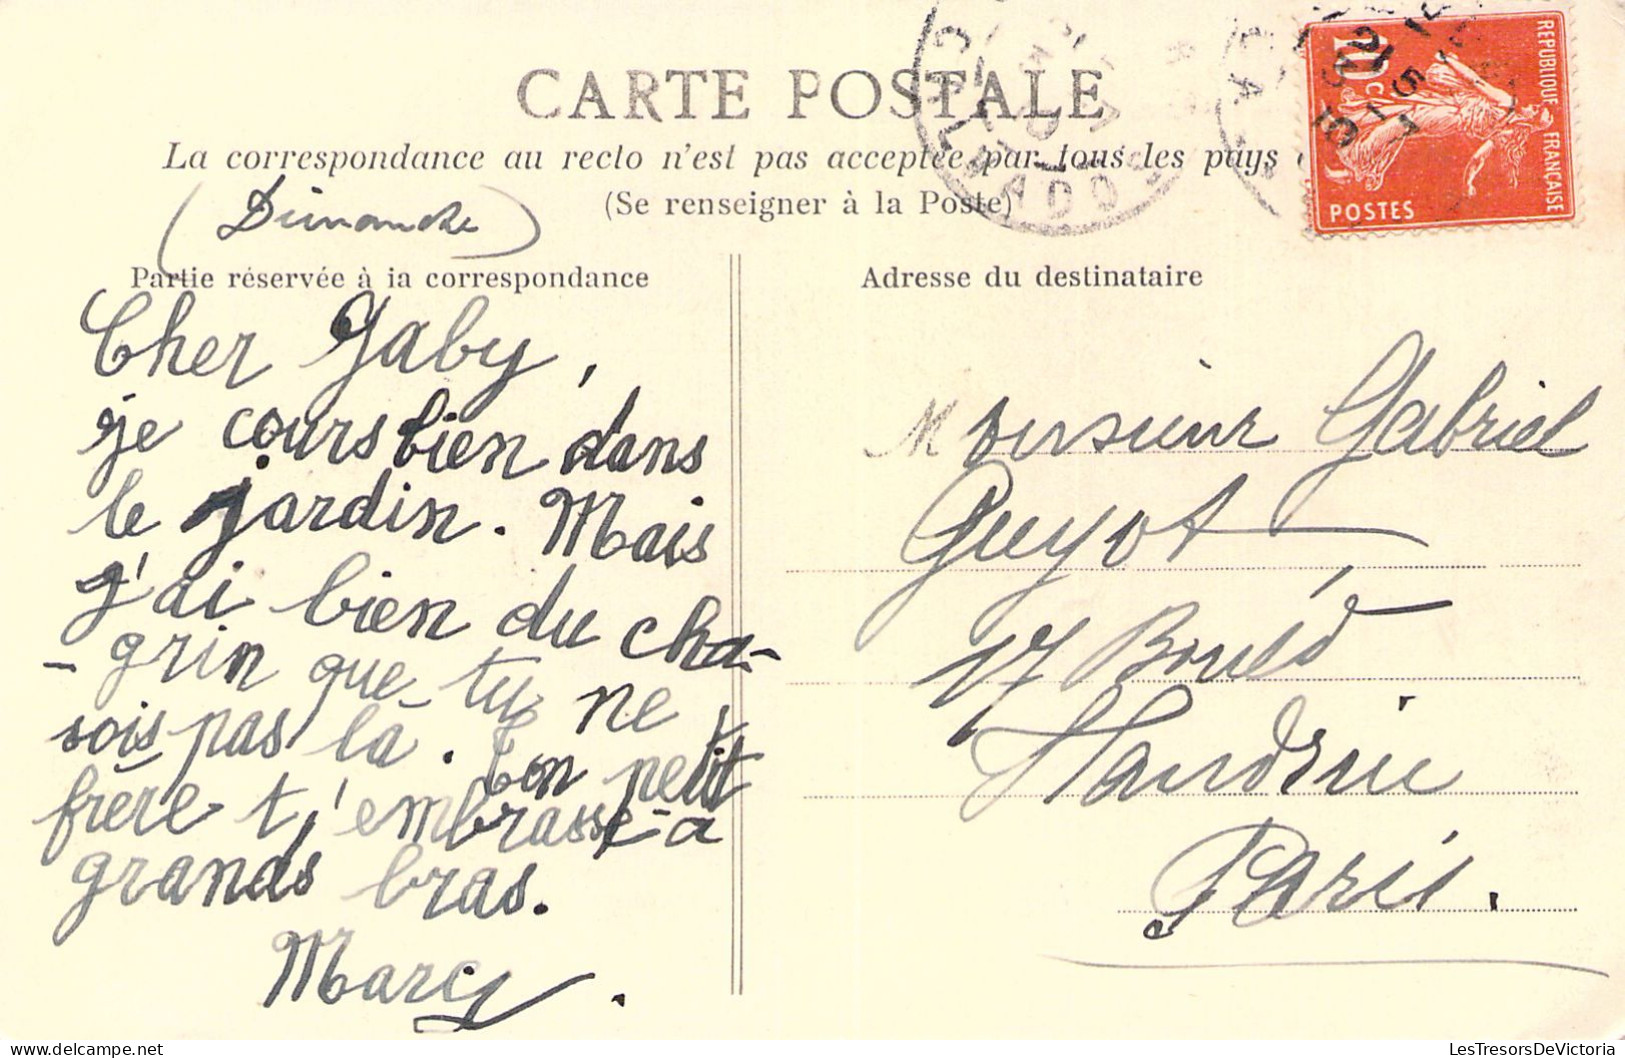 CARTE POSTALE
La correspondance au recto n'est pas acceptée par tous les pays
(Se renseigner à la Poste)
(Dimanche)
Partie réservée à la correspondance
Cher Gaby,
je cours bien dans
le jardin. Mais
j'ai bien du cha-
-grin que tu ne
sois pas là. Ton petit
frère t'embrasse à
grands bras.
Marcy.
Adresse du destinataire
Monsieur Gabriel
Guyot
17 Bould
Paris.
REPUBLIQUE FRANÇAISE
10 c
POSTES
LesTresorsDeVictoria